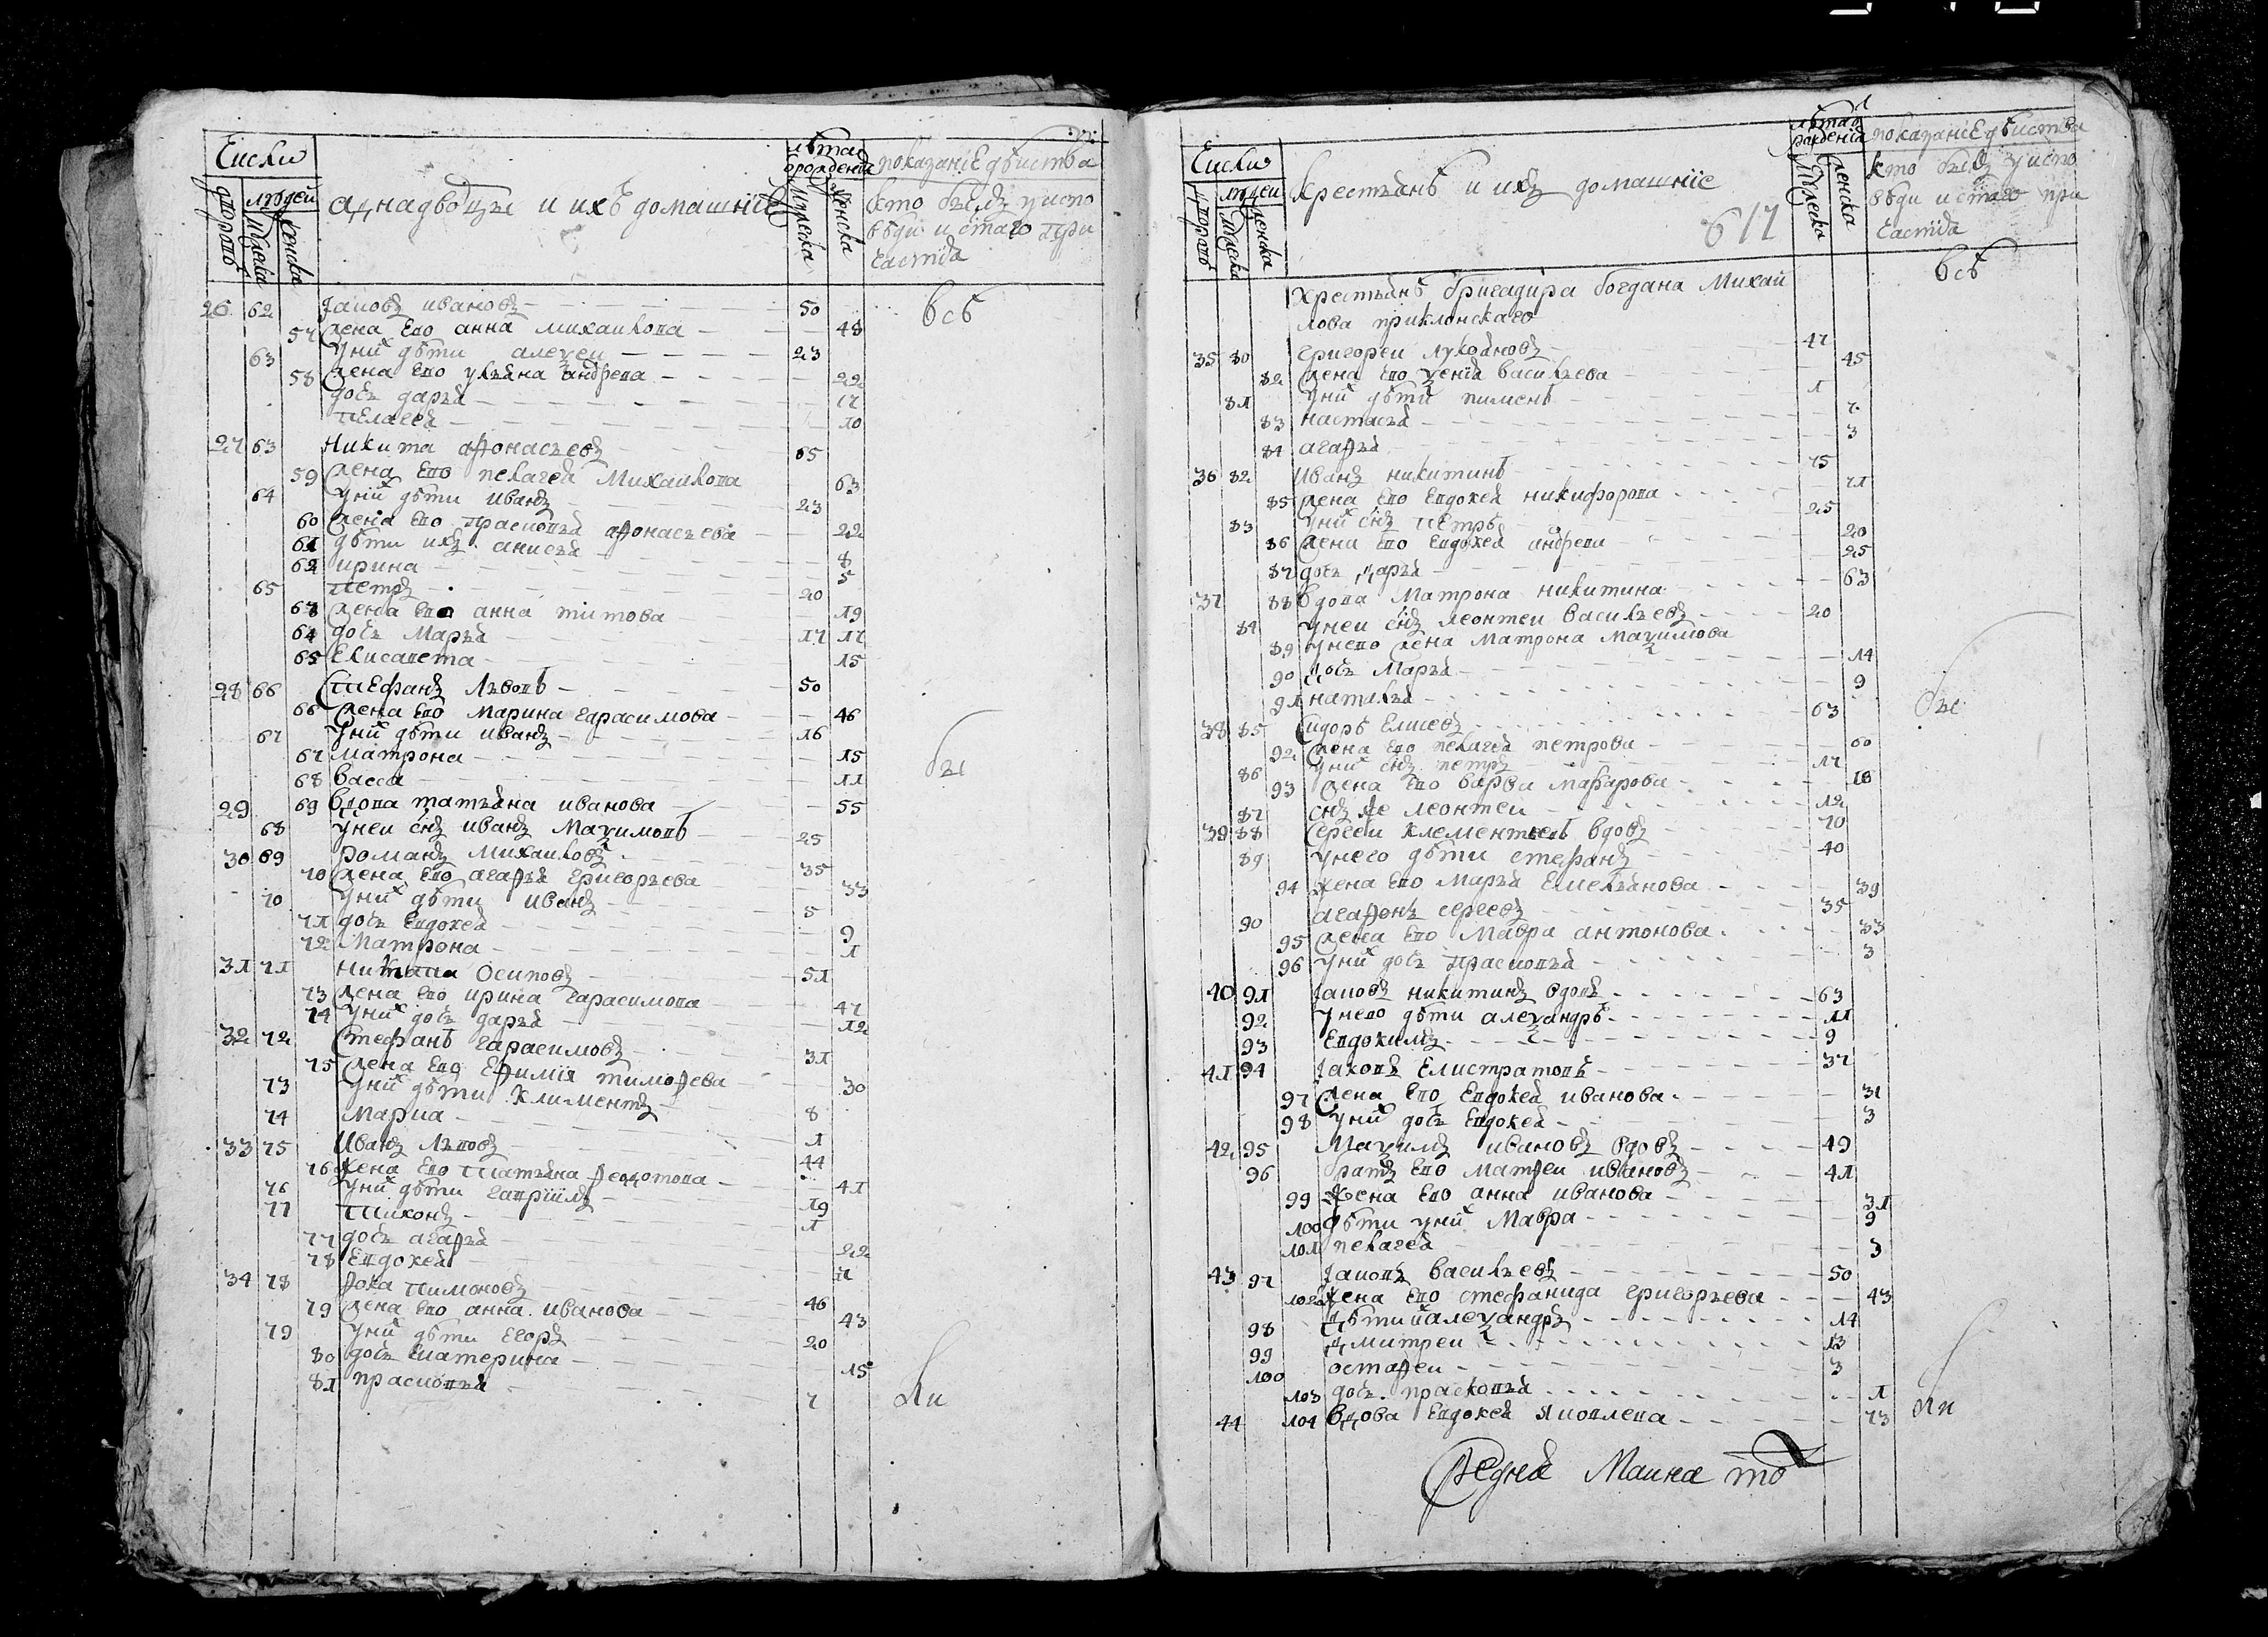 Числи
дворовъ
людей
мужеска
женска
аднадворцы и ихъ домашнїе
лѣта
ѿ рождения
Мужеска
Женска
показанїе дѣиства
кто былъ у испо
вѣди и с҃таго при
частїѧ
26 62 Іаковъ ивановъ 50
57 жена Его анна михаилова 48
63 у нихъ дѣти алеѯеи 23
58 жена Его ульѧна андреева 22
дочь дарьѧ 17
пелагеѧ 10
27 63 Никита афонасьевъ 65
59 жена Его пелагеѧ Михаилова 63
64 у нихъ дѣти иванъ 23
60 жена Его прасковьѧ афонасьева 22
61 дѣти ихъ анисьѧ 8
62 ирина 5
65 петръ 20
63 жена Его анна титова 19
64 дочь Марьѧ 17 17
65 Елисавета 15
28 66 Стефанъ Львовъ 50
66 жена Его Марина гарасимова 46
67 у нихъ дѣти иванъ 16
67 матрона 15
68 васса 11
29 69 вдова татьѧна иванова 55
68 у неи с҃нъ иванъ Маѯимовъ 25
30 69 романъ Михаиловъ 35
70 жена Его агафьѧ григорьева 33
70 у нихъ дѣти иванъ 5
71 дочь Евдокеѧ 9
72 Матрона 1
31 71 никита Осиповъ 51
73 жена Его ирина гарасимова 47
74 у нихъ дочь дарьѧ 12
32 72 Стефанъ гарасимовъ 31
75 жена Его Ефимїя тимофева 30
73 у нихъ дѣти Климентъ 8
74 Мариа 1
33 75 Иванъ Львовъ 44
76 жена Его татьѧна федотова 41
76 у нихъ дѣти гаврїилъ 19
77 тихонъ 1
77 дочь агафьѧ 22
78 Евдокеѧ 7
34 78 фока тимоновъ 46
79 жена Его анна иванова 43
79 у нихъ дѣти Егоръ 20
80 дочь катерина 15
81 прасковьѧ 7
всѣ
бы
ли
Числи
дворовъ
людей
мужеска
женска
крестьѧнѣ и ихъ домашнїе
617
лѣта ѿ
рожденїа
Мужеска
женска
показанїе дѣиства
кто былъ у испо
вѣди и с҃таго при
частїѧ
Крестьѧнѣ бригадира богдана Михаи
лова приклонскаго
35 80 григореи лукоѧновъ 47
82 жена Его ѯенїѧ васильева 45
81 у нихъ дѣти пименъ 1
83 настасьѧ 7
84 агафьѧ 3
36 82 Иванъ никитинъ 75
85 жена Его Евдокеѧ никифорова 71
83 у нихъ с҃нъ петръ 25
86 жена Его Евдокеѧ андреева 20
87 дочь дарьѧ 25
37 88 вдова Матрона никитина 63
84 у неи с҃нъ леонтеи васильевъ 20
89 у него жена Матрона Маѯимова
90 дочь Марьѧ 14
91 натальѧ 9
38 85 Сидоръ Елисевъ 63
92 жена Его пелагеѧ петрова 60
86 у нихъ с҃нъ петръ 17
93 жена Его варва макарова 18
87 с҃нъ же леонтеи 12
39 88 Сергеи клементьевъ вдовъ 70
89 у него дѣти стефанъ 40
94 жена Его Марьѧ Емельѧнова 39
90 агафонъ сергеевъ 35
95 жена Его Мавра антонова 33
96 у нихъ дочь прасковьѧ 3
40 91 Іаковъ никитинъ вдовъ 63
92 у него дѣти алеѯандръ 11
93 Евдокимъ 9
41 94 Іаковъ Елистратовъ 37
97 жена Его Евдокеѧ иванова 31
98 у нихъ дочь Евдокеѧ 3
42 95 Маѯимъ ивановъ вдовъ 49
96 братъ Его матфеи ивановъ 41
99 жена Его анна иванова 31
100 дѣти у нихъ Мавра 9
101 пелагеѧ 3
43 97 Іаковъ васильевъ 50
102 жена Его стефанида григорьева 43
98 дѣти ихъ алеѯандръ 14
99 дмитреи 13
100 остафеи 3
103 дочь прасковьѧ 1
44 104 вдова Евдокеѧ Яковлева 73
всѣ
бы
ли